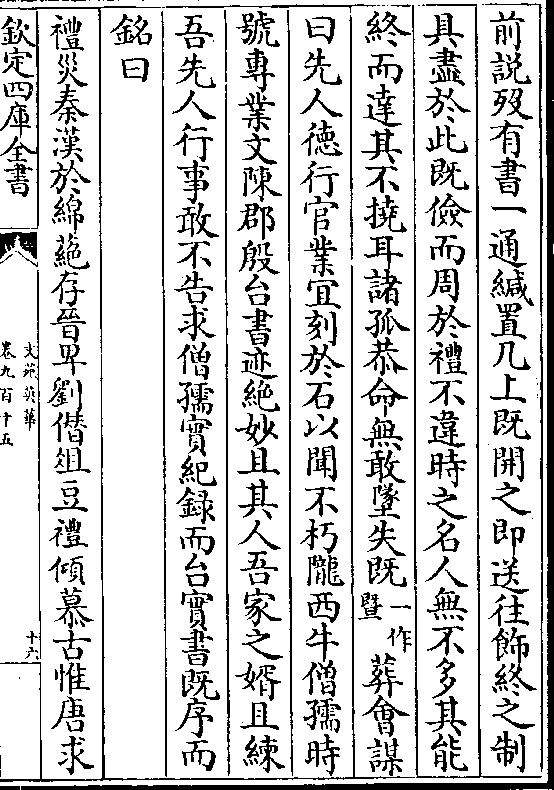 前説歿有書一通緘置几上既開之即送往飾終之制
具盡於此既儉而周於禮不違時之名人無不多其能
終而達其不撓耳諸孤恭命無敢墜失既一作暨葬會謀
曰先人德行官業宜刻於石以聞不朽隴西牛僧孺時
號專業文陳郡殷台書迹絶妙且其人吾家之婿且練
吾先人行事敢不告求僧孺實紀録而台實書既序而
銘曰
禮災秦漢於綿蕝存晉卑劉僭俎豆禮傾慕古惟唐求
欽定四庫全書
文苑英華
卷九百十五
十六